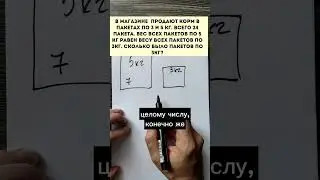 В МАГАЗИНЕ ПРОДАЮТ КОРМ В
ПАКЕТАХ ПО 3 И 5 КГ. ВСЕГО 24
ПАКЕТА. ВЕС ВСЕХ ПАКЕТОВ ПО 5
КГ РАВЕН ВЕСУ ВСЕХ ПАКЕТОВ ПО
3КГ. СКОЛЬКО БЫЛО ПАКЕТОВ ПО
3КГ?
5кг
3кг
7
целому числу,
конечно же